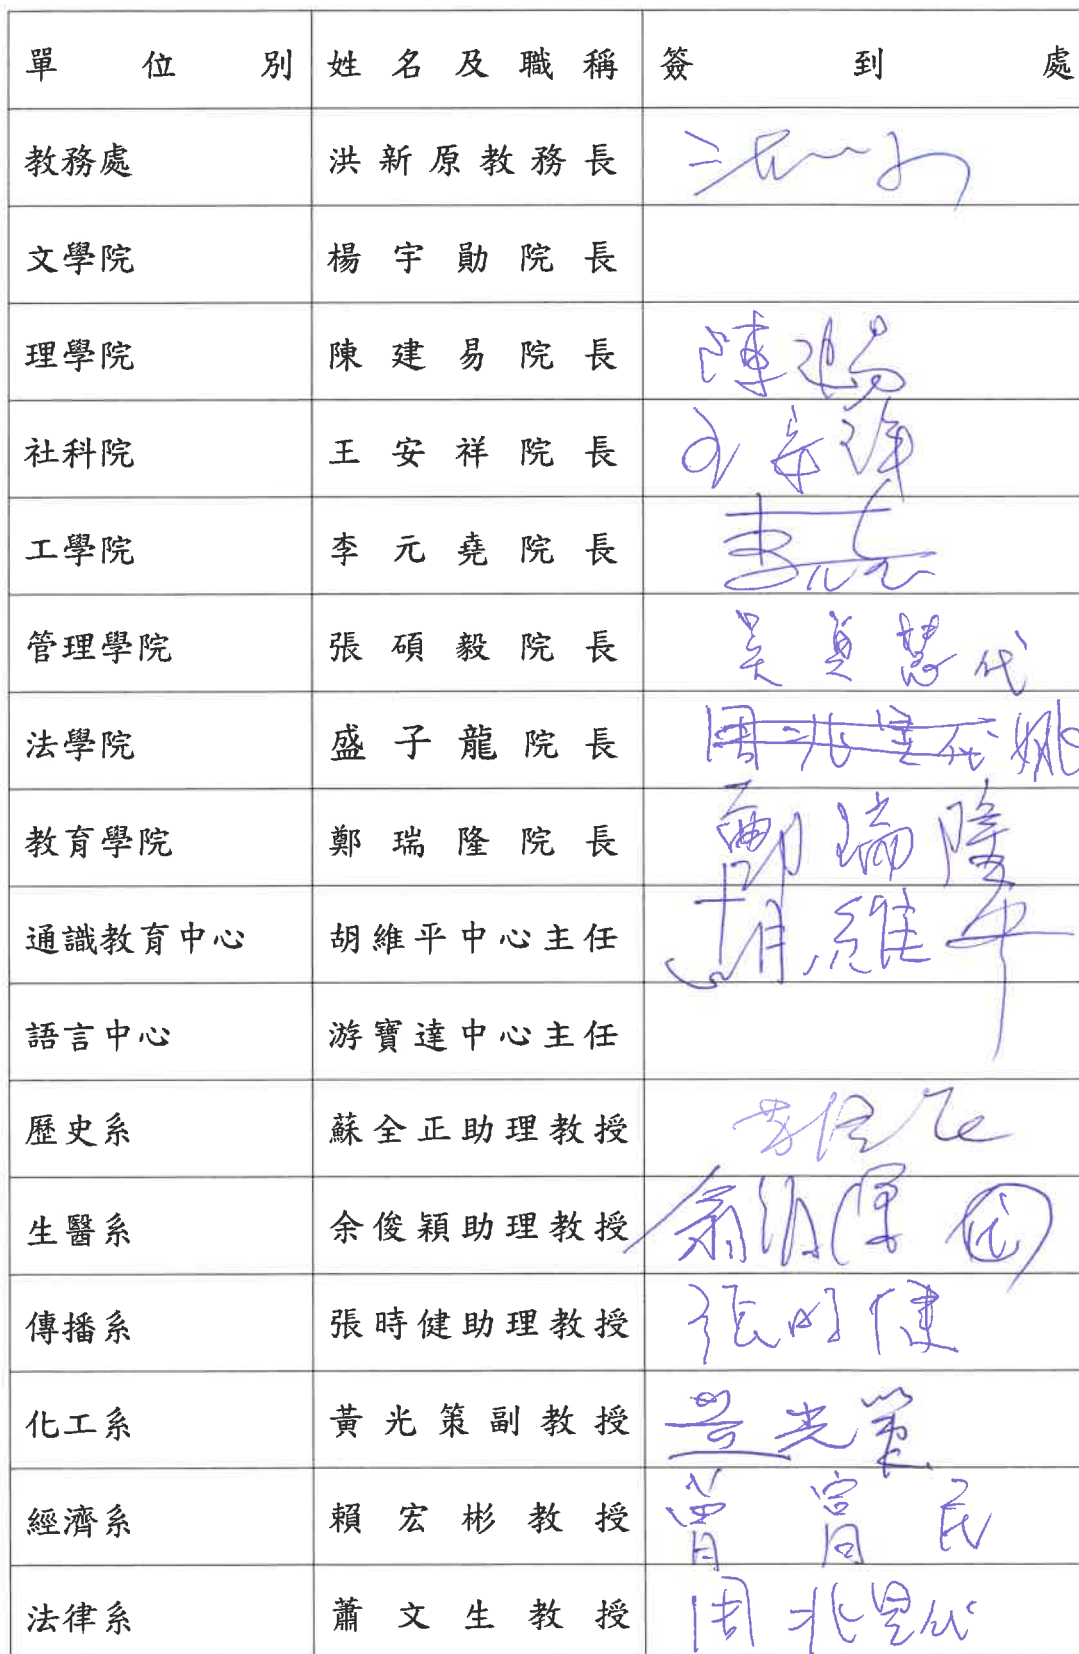 單位別 姓名及職稱 簽到處
教務處 洪新原教務長
文學院 楊宇勛院長
理學院 陳建易院長 陳建易
社科院 王安祥院長 王安祥
工學院 李元堯院長
管理學院 張碩毅院長 吳貞慧代
法學院 盛子龍院長 姚
教育學院 鄭瑞隆院長 鄭瑞隆
通識教育中心 胡維平中心主任 胡維平
語言中心 游寶達中心主任
歷史系 蘇全正助理教授
生醫系 余俊穎助理教授 代
傳播系 張時健助理教授 張时健
化工系 黃光策副教授 黃光策
經濟系 賴宏彬教授 民
法律系 蕭文生教授 代